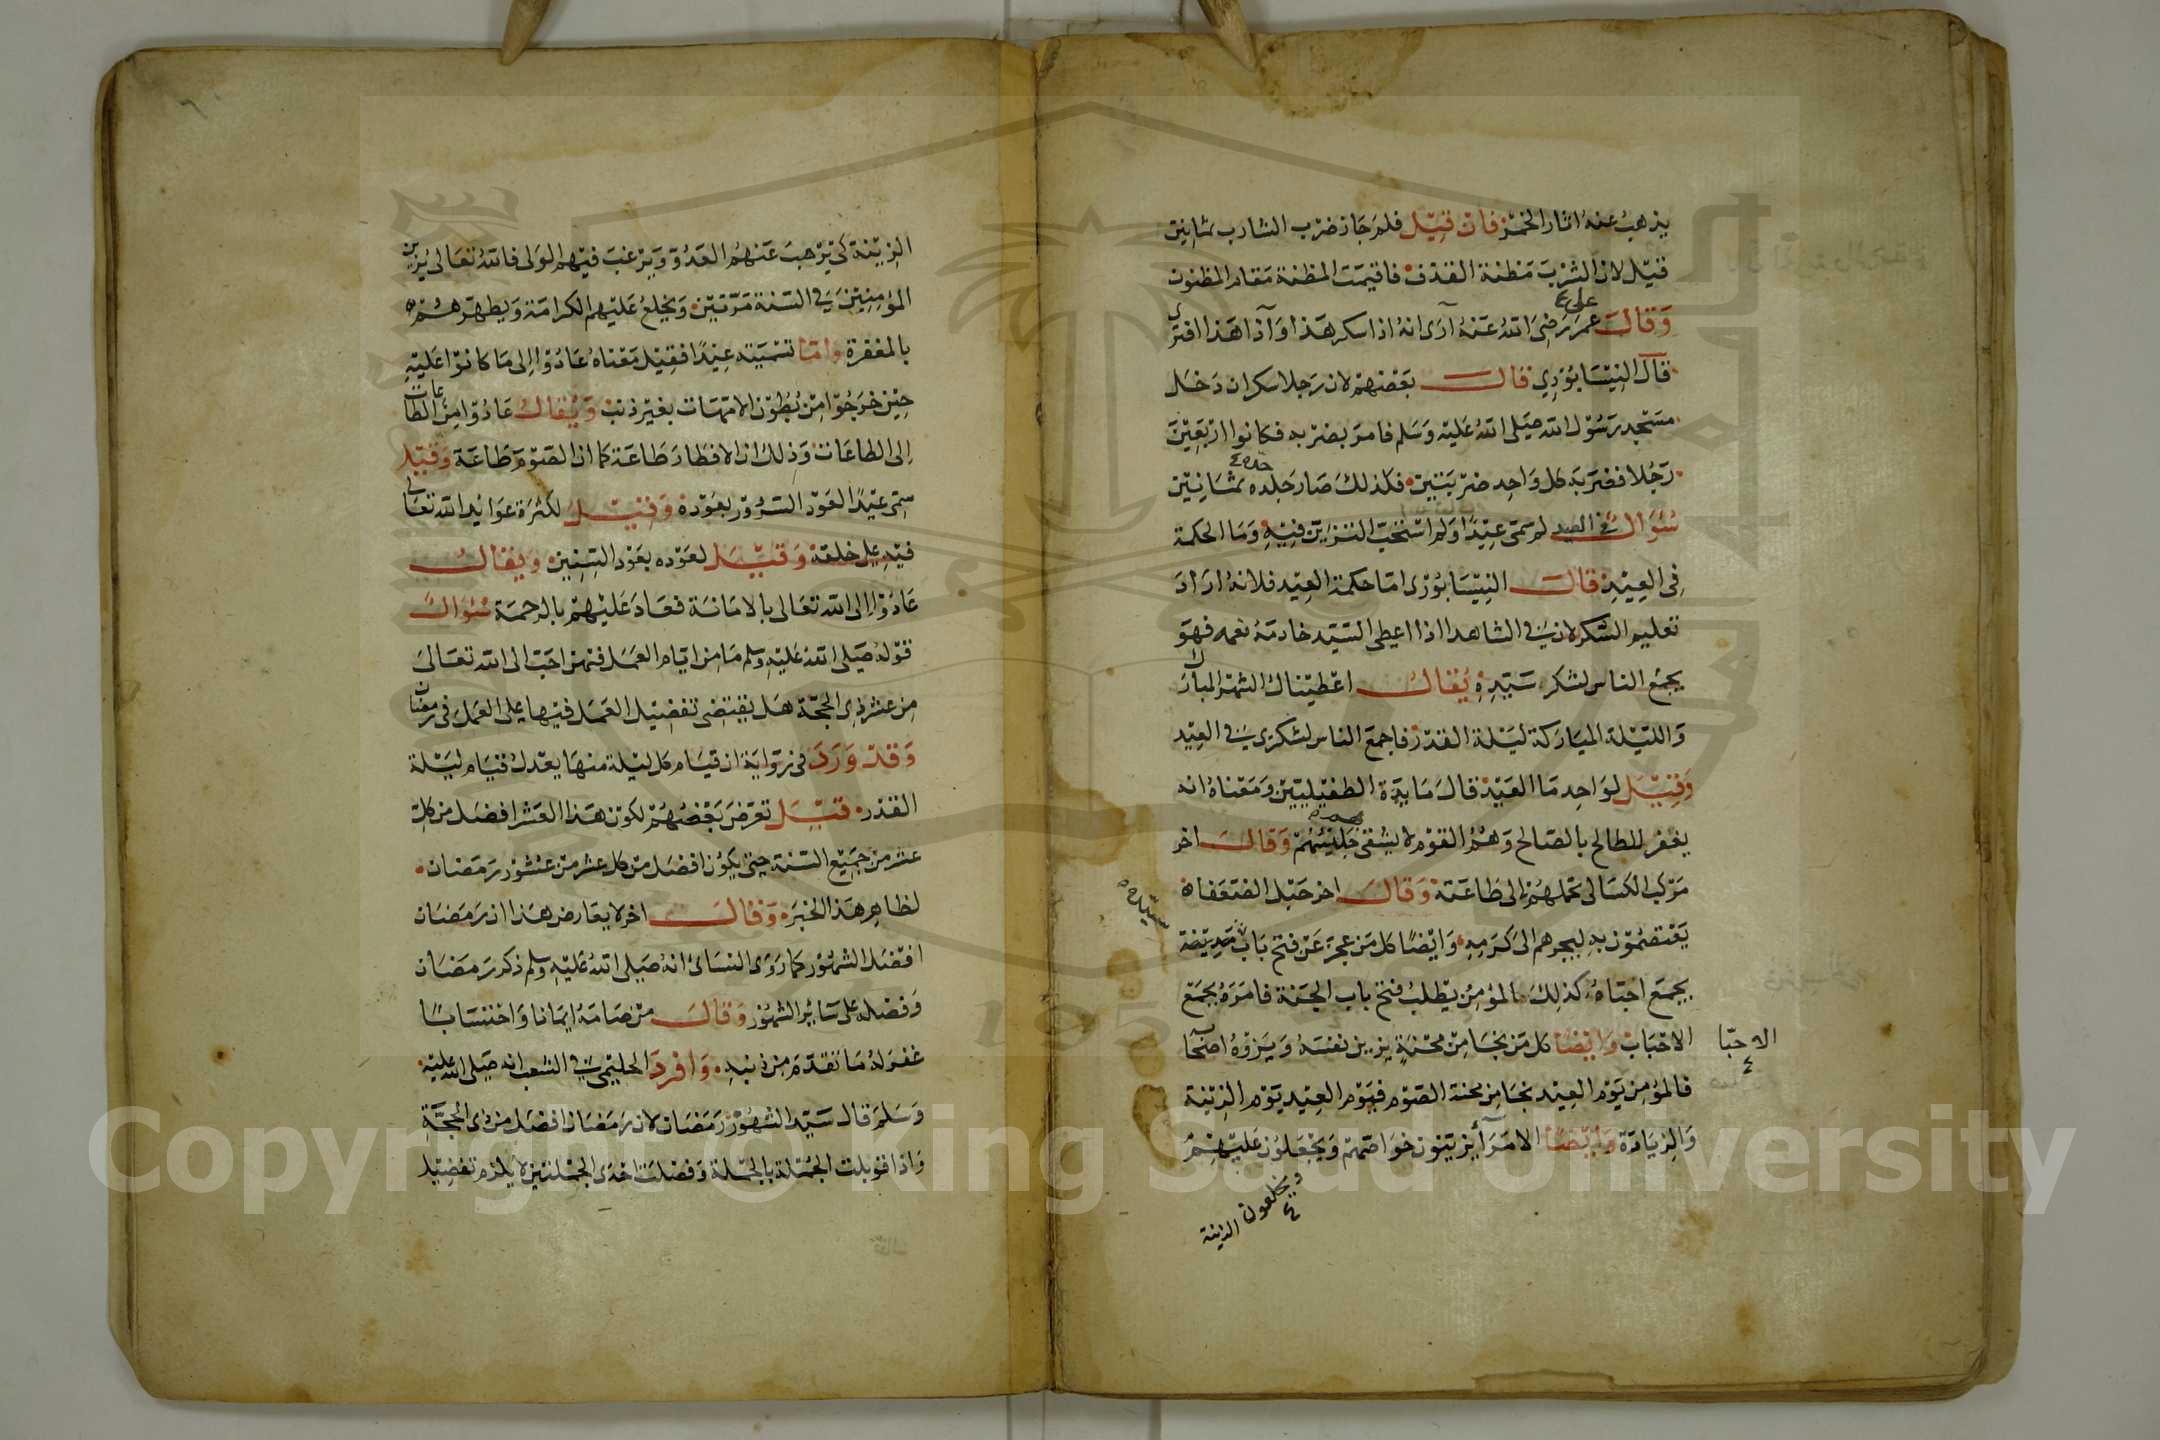 يذهب عنه اثار الخمر فان قيل فلم جاز ضرب الشارب ثمانين
قيل لان الشرب مظنة القذف فاقيمت المظنة مقام المظنون
وقال عمر رضي الله عنه ارى انه اذا سكر هذا واذا هذا افترى
قال النيسابوري قال بعضهم لان رجلا سكران دخل
مسجد رسول الله صلى الله عليه وسلم فامر بضربه فكانوا اربعين
رجلا فضربه كل واحد ضربتين فكذلك صار جلده ثمانين
سؤال في العيد لم سمى عيدا ولم استحب التزين فيه وما الحكمة
في العيد قال النيسابوري اما حكمة العيد فلانه اراد
تعليم الشكر لان في الشاهد اذا اعطى السيد خادمه نعمه فهو
يجمع الناس لشكر سيده يقال اعطيناك الشهر المبارك
والليلة المباركة ليلة القدر فاجمع الناس لشكري في العيد
وقيل لواحد ما العيد قال مايدة الطفيليين ومعناه انه
يغفر للطالح بالصالح وهم القوم لا يشقى جليسهم وقال اخر
مركب الكسالى تحملهم الى طاعته وقال اخر حبل الضعفاء
يعتصمون به ليجرهم الى كرمه وايضا كل من عجز عن فتح باب مدينة
يجمع احباه كذلك المؤمن يطلب فتح باب الجنة فامره بجمع
الاحباب وايضا كل من نجا من محنة يزين نفسه ويزوه اصحابه
الاحبا
فالمؤمن يوم العيد نجا من محنة الصوم فيوم العيد يوم الزينة
والزيادة وايضا الامرآ يزينون خواصهم ويجعلون عليهم
ويخلعون
الزينة
الزينة كي يرهب عنهم العدو ويرغب فيهم الولى فالله تعالى يزين
المؤمنين في السنة مرتين ويخلع عليهم الكرامة ويطهرهم
بالمغفرة واما تسميته عيدا فقيل معناه عادوا الى ما كانوا عليه
حين خرجوا من بطون الامهات بغير ذنب ويقال عادوا من الطاعات
الى الطاعات وذلك ان الافطار طاعة كما ان الصوم طاعة وقيل
سمى عيدا لعود السرور بعوده وقيل لكثرة عوائد الله تعالى
فيه على خلقه وقيل لعوده بعود السنين ويقال
عادوا الى الله تعالى بالامانة فعاد عليهم بالرحمة سؤال
قوله صلى الله عليه وسلم ما من ايام العمل فيهن احب الى الله تعالى
من عشر ذي الحجة هل يقتضى تفضيل العمل فيها على العمل في رمضان
وقد ورد في رواية ان قيام كل ليلة منها يعدل قيام ليلة
القدر قيل تعرض بعضهم لكون هذا العشر افضل من كل
عشر من جميع السنة حتى يكون افضل من كل عشر من عشور رمضان
لظاهر هذا الخبر وقال اخر لا يعارض هذا ان رمضان
افضل الشهور كما روى النسائ انه صلى الله عليه وسلم ذكر رمضان
وفضله على سائر الشهور وقال من صامه ايمانا واحتسابا
غفر له ما تقدم من ذنبه وافرد الحليمي في الشعب انه صلى الله عليه
وسلم قال سيد الشهور رمضان لان رمضان افضل من ذي الحجة
واذا قوبلت الجملة بالجملة وفضلت احدى الجملتين لا يلزم تفضيل